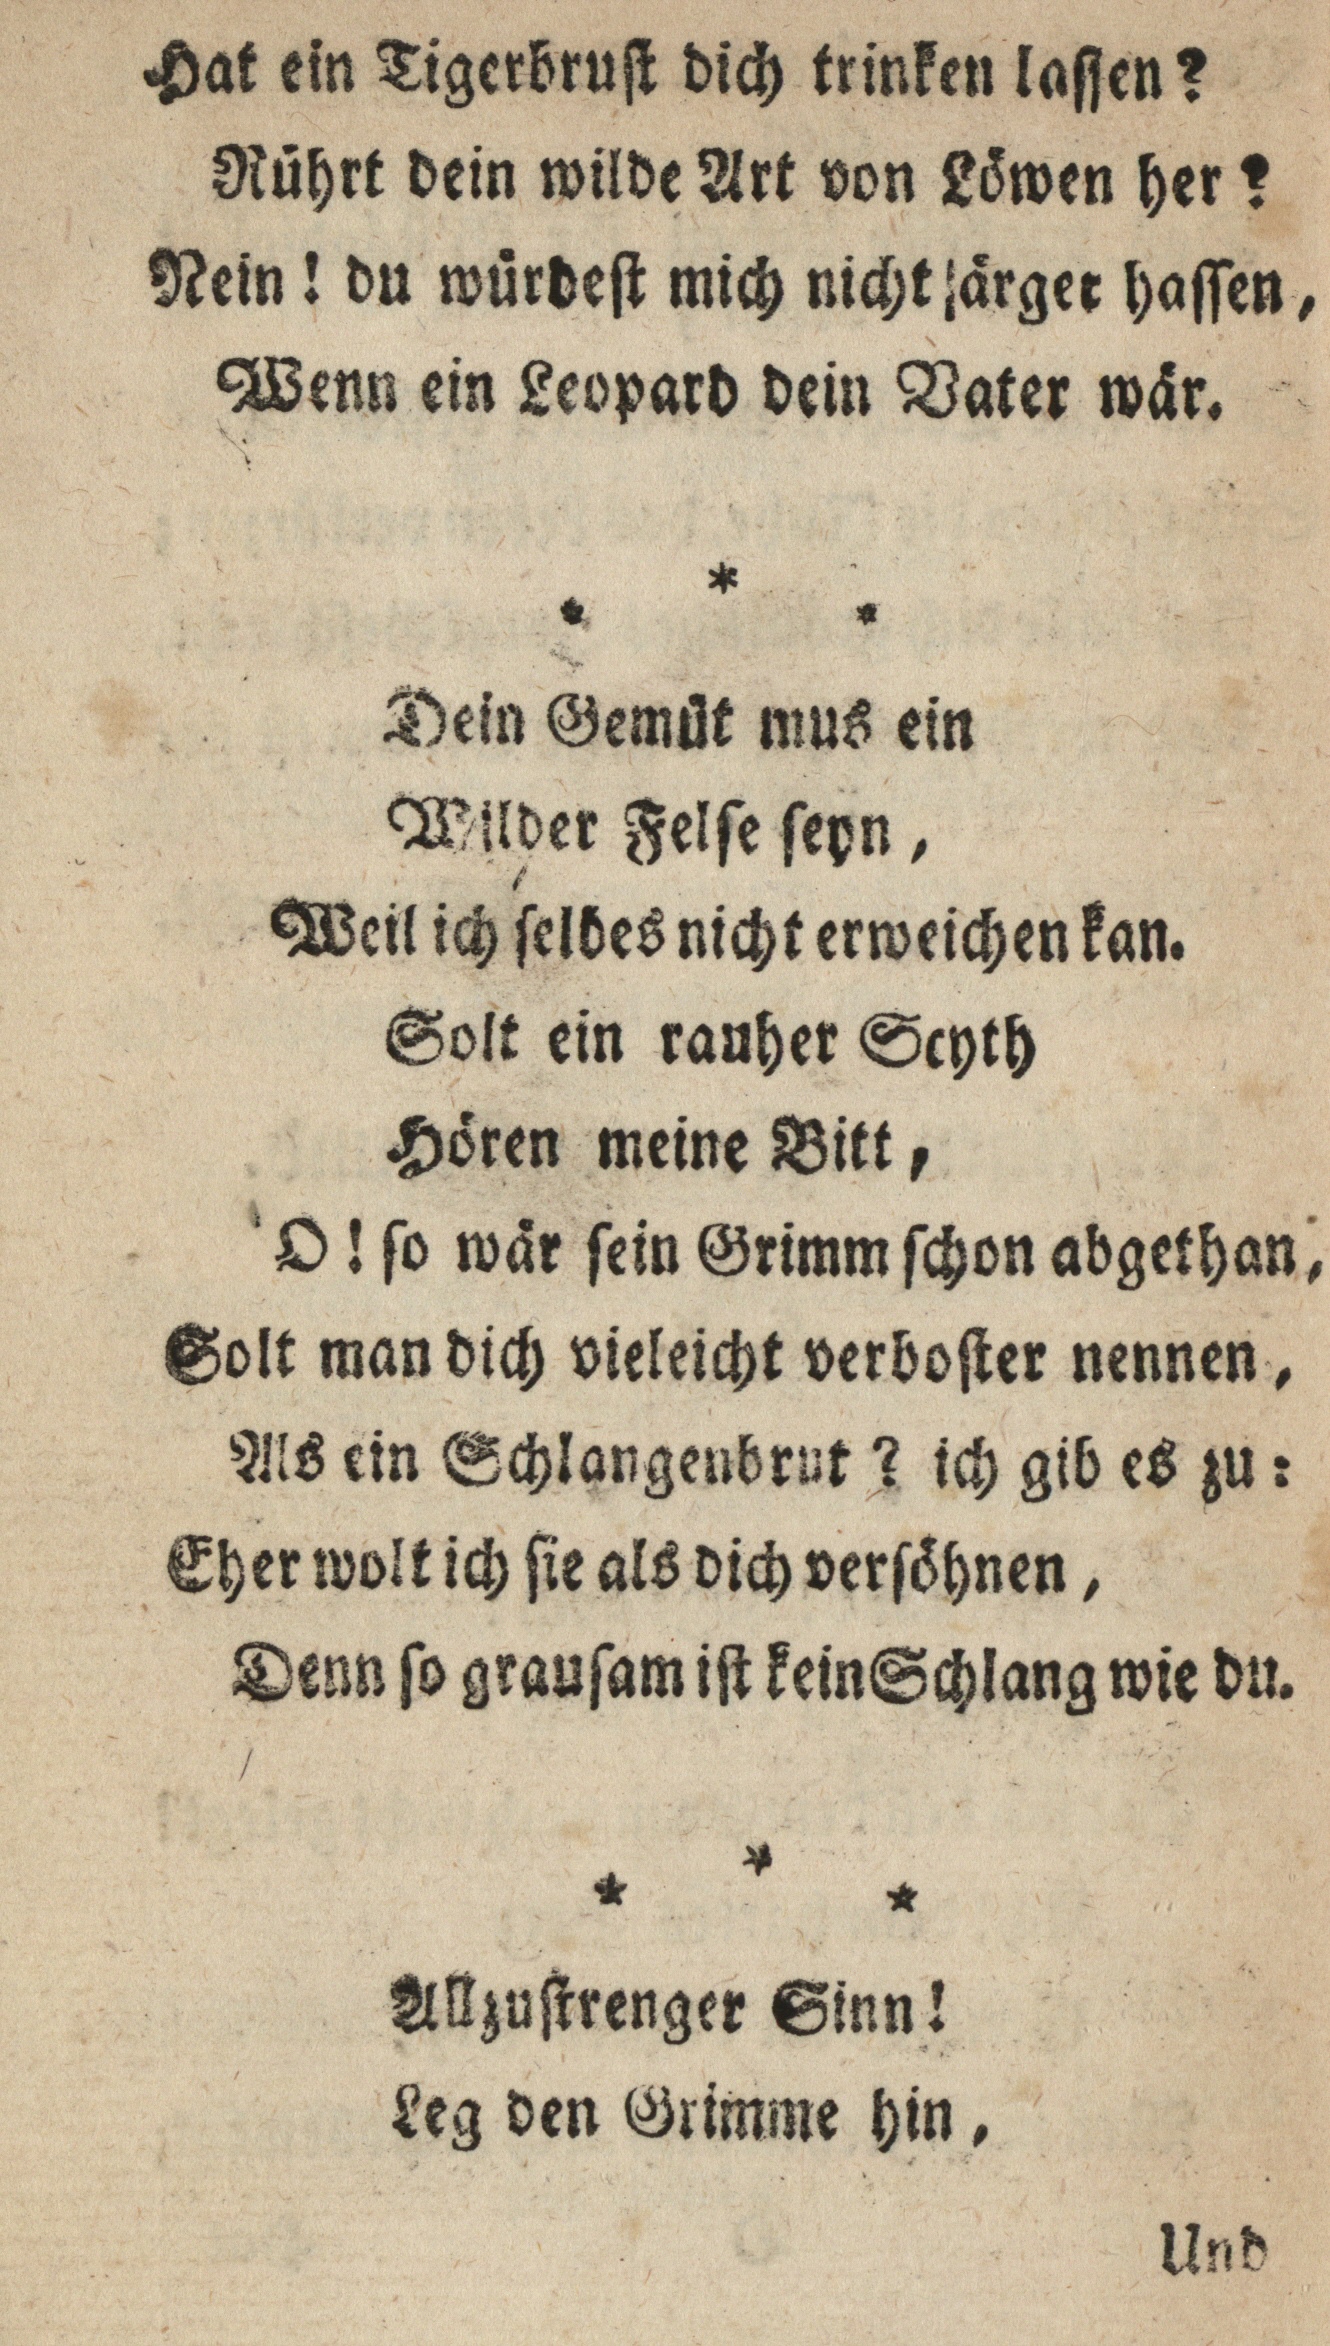 Hat ein Tigerbruſt dich trinken laſſen?
Rührt dein wilde Art von Löwen her?
Nein! du würdeſt mich nicht ärger haſſen,
Wenn ein Leopard dein Vater wär.
* * *
Dein Gemüt mus ein
Wilder Felſe ſeyn,
Weil ich ſelbes nicht erweichen kan.
Solt ein rauher Scyth
Hören meine Bitt,
O! ſo wär ſein Grimm ſchon abgethan,
Solt man dich vieleicht verboſter nennen,
Als ein Schlangenbrut? ich gib es zu:
Eher wolt ich ſie als dich verſöhnen,
Denn ſo grauſam iſt kein Schlang wie du.
* * *
Allzuſtrenger Sinn!
Leg den Grimme hin,
Und